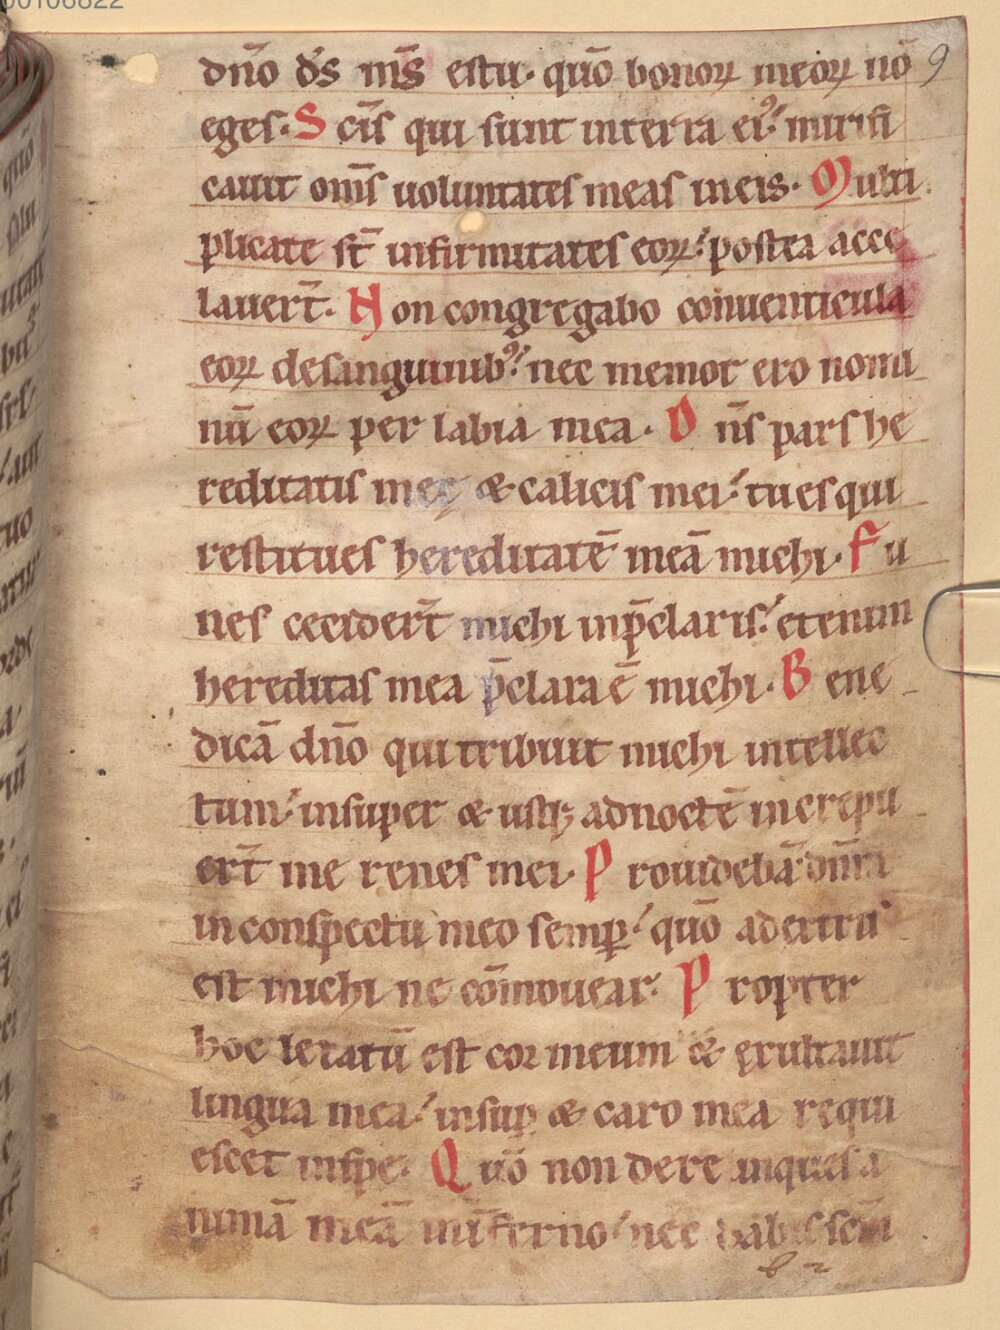 00106822
dn̄o ds̄ ms̄ es tu· quō bonoꝝ meoꝝ nō 9
eges· Scīs qui sunt in terra ei᷒ mirifi
cauit om̄s uoluntates meas in eis· Multi
plicate st̄ infirmitates eoꝝ postea acce
lauer̄t· Non congregabo conuenticula
eoꝝ de sanguinib᷒ nec memor ero nomi
nū eoꝝ per labia mea· Dn̄s pars he
reditatis meę & calicis mei tu es qui
restitues hereditatē meā michi· Fu
nes cecider̄t michi in p̄claris etenim
hereditas mea p̄clara ē michi· Bene
dicā dn̄o qui tribuit michi intellec
tum insuper & usqꝫ ad noctē increpu
er̄t me renes mei· Prouidebā dn̄m
in conspectu meo semꝑ quō a dextris
est michi ne cōmouear· Propter
hoc letatū est cor meum & exultauit
lingua mea insuꝑ & caro mea requi
escet in spe· Quō non derelinques a
nimā meā in īferno nec dabis scm̄